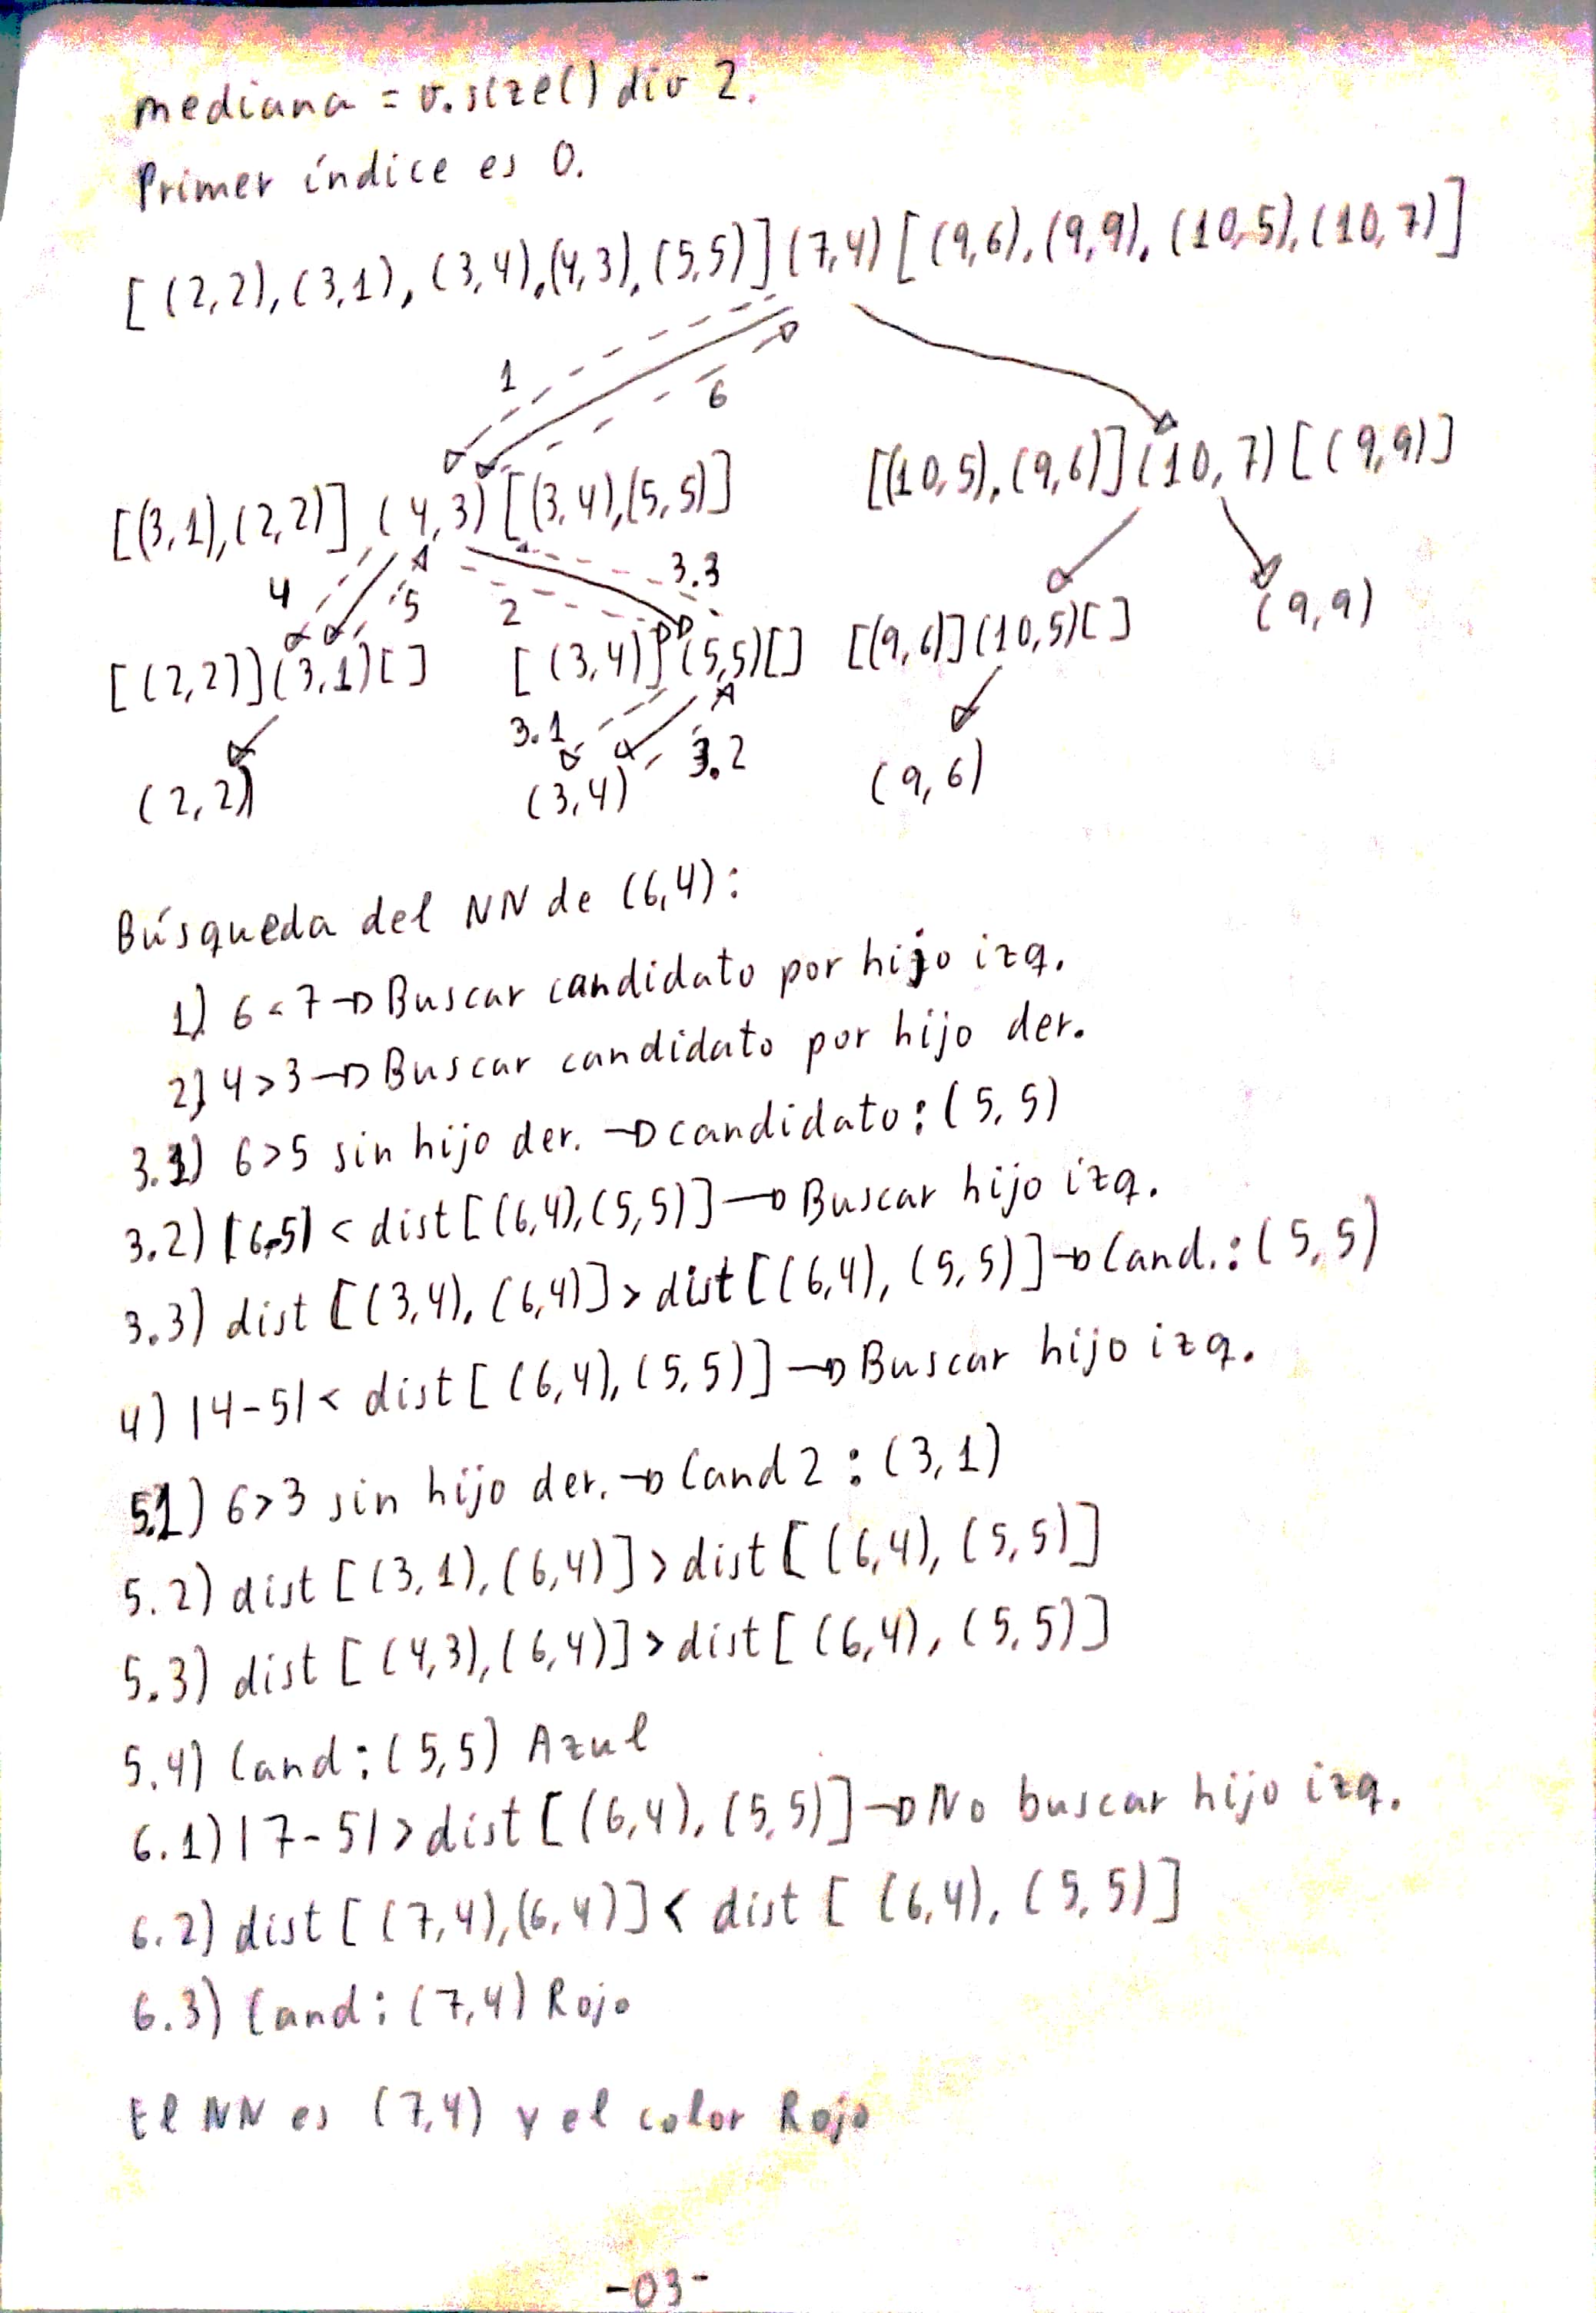 mediana = v.size() div 2.
Primer índice es 0.
[(2,2),(3,1),(3,4),(4,3),(5,5)](7,4)[(9,6),(9,9),(10,5),(10,7)]
1
6
[(3,1),(2,2)](4,3)[(3,4),(5,5)] [(10,5),(9,6)](10,7)[(9,9)]
4 5 2 3.3
[(2,2)](3,1)[] [(3,4)](5,5)[] [(9,6)](10,5)[] (9,9)
3.1 3.2
(2,2) (3,4) (9,6)
Búsqueda del NN de (6,4):
1) 6<7→Buscar candidato por hijo izq.
2) 4>3→Buscar candidato por hijo der.
3.1) 6>5 sin hijo der.→candidato:(5,5)
3.2) |6-5|<dist[(6,4),(5,5)]→Buscar hijo izq.
3.3) dist[(3,4),(6,4)]>dist[(6,4),(5,5)]→Cand.:(5,5)
4) |4-5|<dist[(6,4),(5,5)]→Buscar hijo izq.
5.1) 6>3 sin hijo der.→Cand2:(3,1)
5.2) dist[(3,1),(6,4)]>dist[(6,4),(5,5)]
5.3) dist[(4,3),(6,4)]>dist[(6,4),(5,5)]
5.4) Cand:(5,5) Azul
6.1) |7-5|>dist[(6,4),(5,5)]→No buscar hijo izq.
6.2) dist[(7,4),(6,4)]<dist[(6,4),(5,5)]
6.3) Cand:(7,4) Rojo
El NN es (7,4) y el color Rojo
-03-